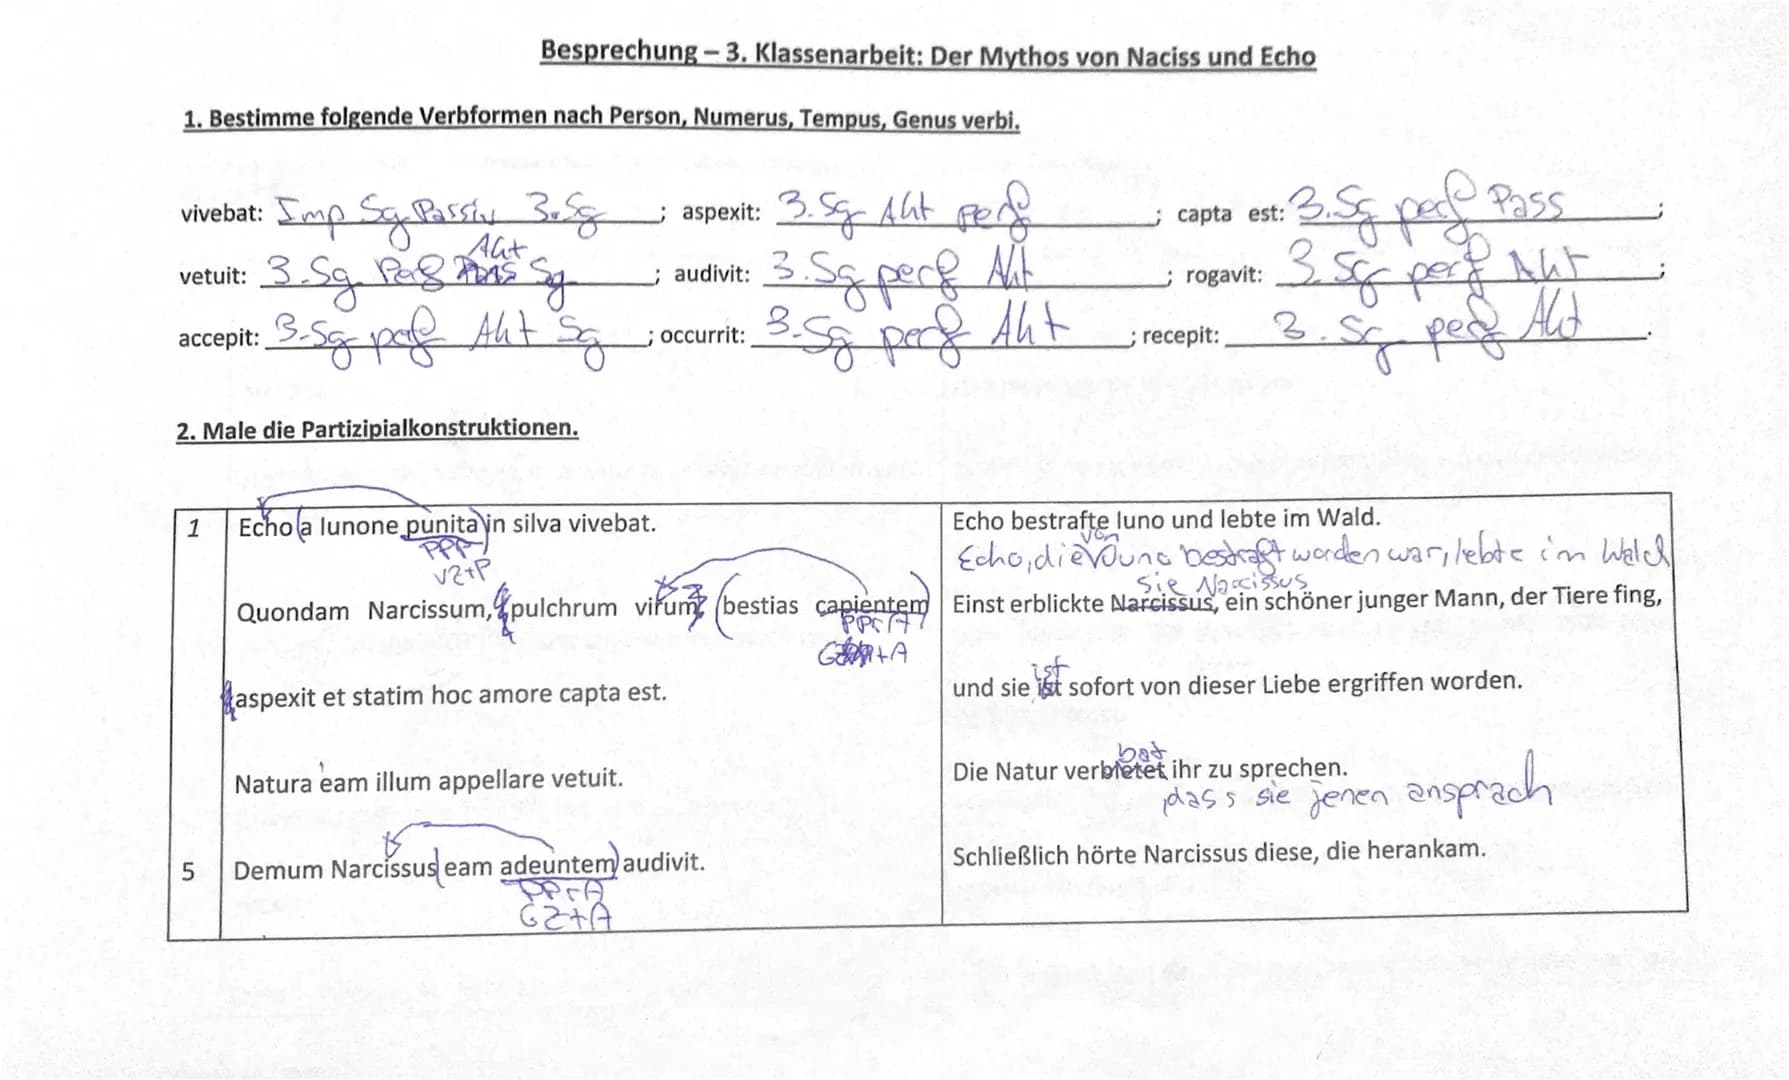 Besprechung – 3. Klassenarbeit: Der Mythos von Naciss und Echo
1. Bestimme folgende Verbformen nach Person, Numerus, Tempus, Genus verbi.
vivebat: Imp Sg Passiv 3.Sg ; aspexit: 3.Sg Akt perf ; capta est: 3.Sg perf Pass ;
Akt
vetuit: 3.Sg Perf Sg ; audivit: 3.Sg perf Akt ; rogavit: 3.Sg perf Akt ;
accepit: 3.Sg perf Akt Sg ; occurrit: 3.Sg perf Akt ; recepit: 3.Sg perf Akt .
2. Male die Partizipialkonstruktionen.
1 Echo (a Iunone punita) in silva vivebat.
PPP
VZ+P
Quondam Narcissum, pulchrum virum, (bestias capientem)
PPrA
G+A
aspexit et statim hoc amore capta est.
Natura eam illum appellare vetuit.
5 Demum Narcissus eam adeuntem) audivit.
PPrA
GZ+A
Echo bestrafte Iuno und lebte im Wald.
von
Echo, die Juno bestraft worden war, lebte im Wald
sie Narcissus
Einst erblickte Narcissus, ein schöner junger Mann, der Tiere fing,
ist
und sie ist sofort von dieser Liebe ergriffen worden.
bat
Die Natur verbietet ihr zu sprechen.
, dass sie jenen ansprach
Schließlich hörte Narcissus diese, die herankam.